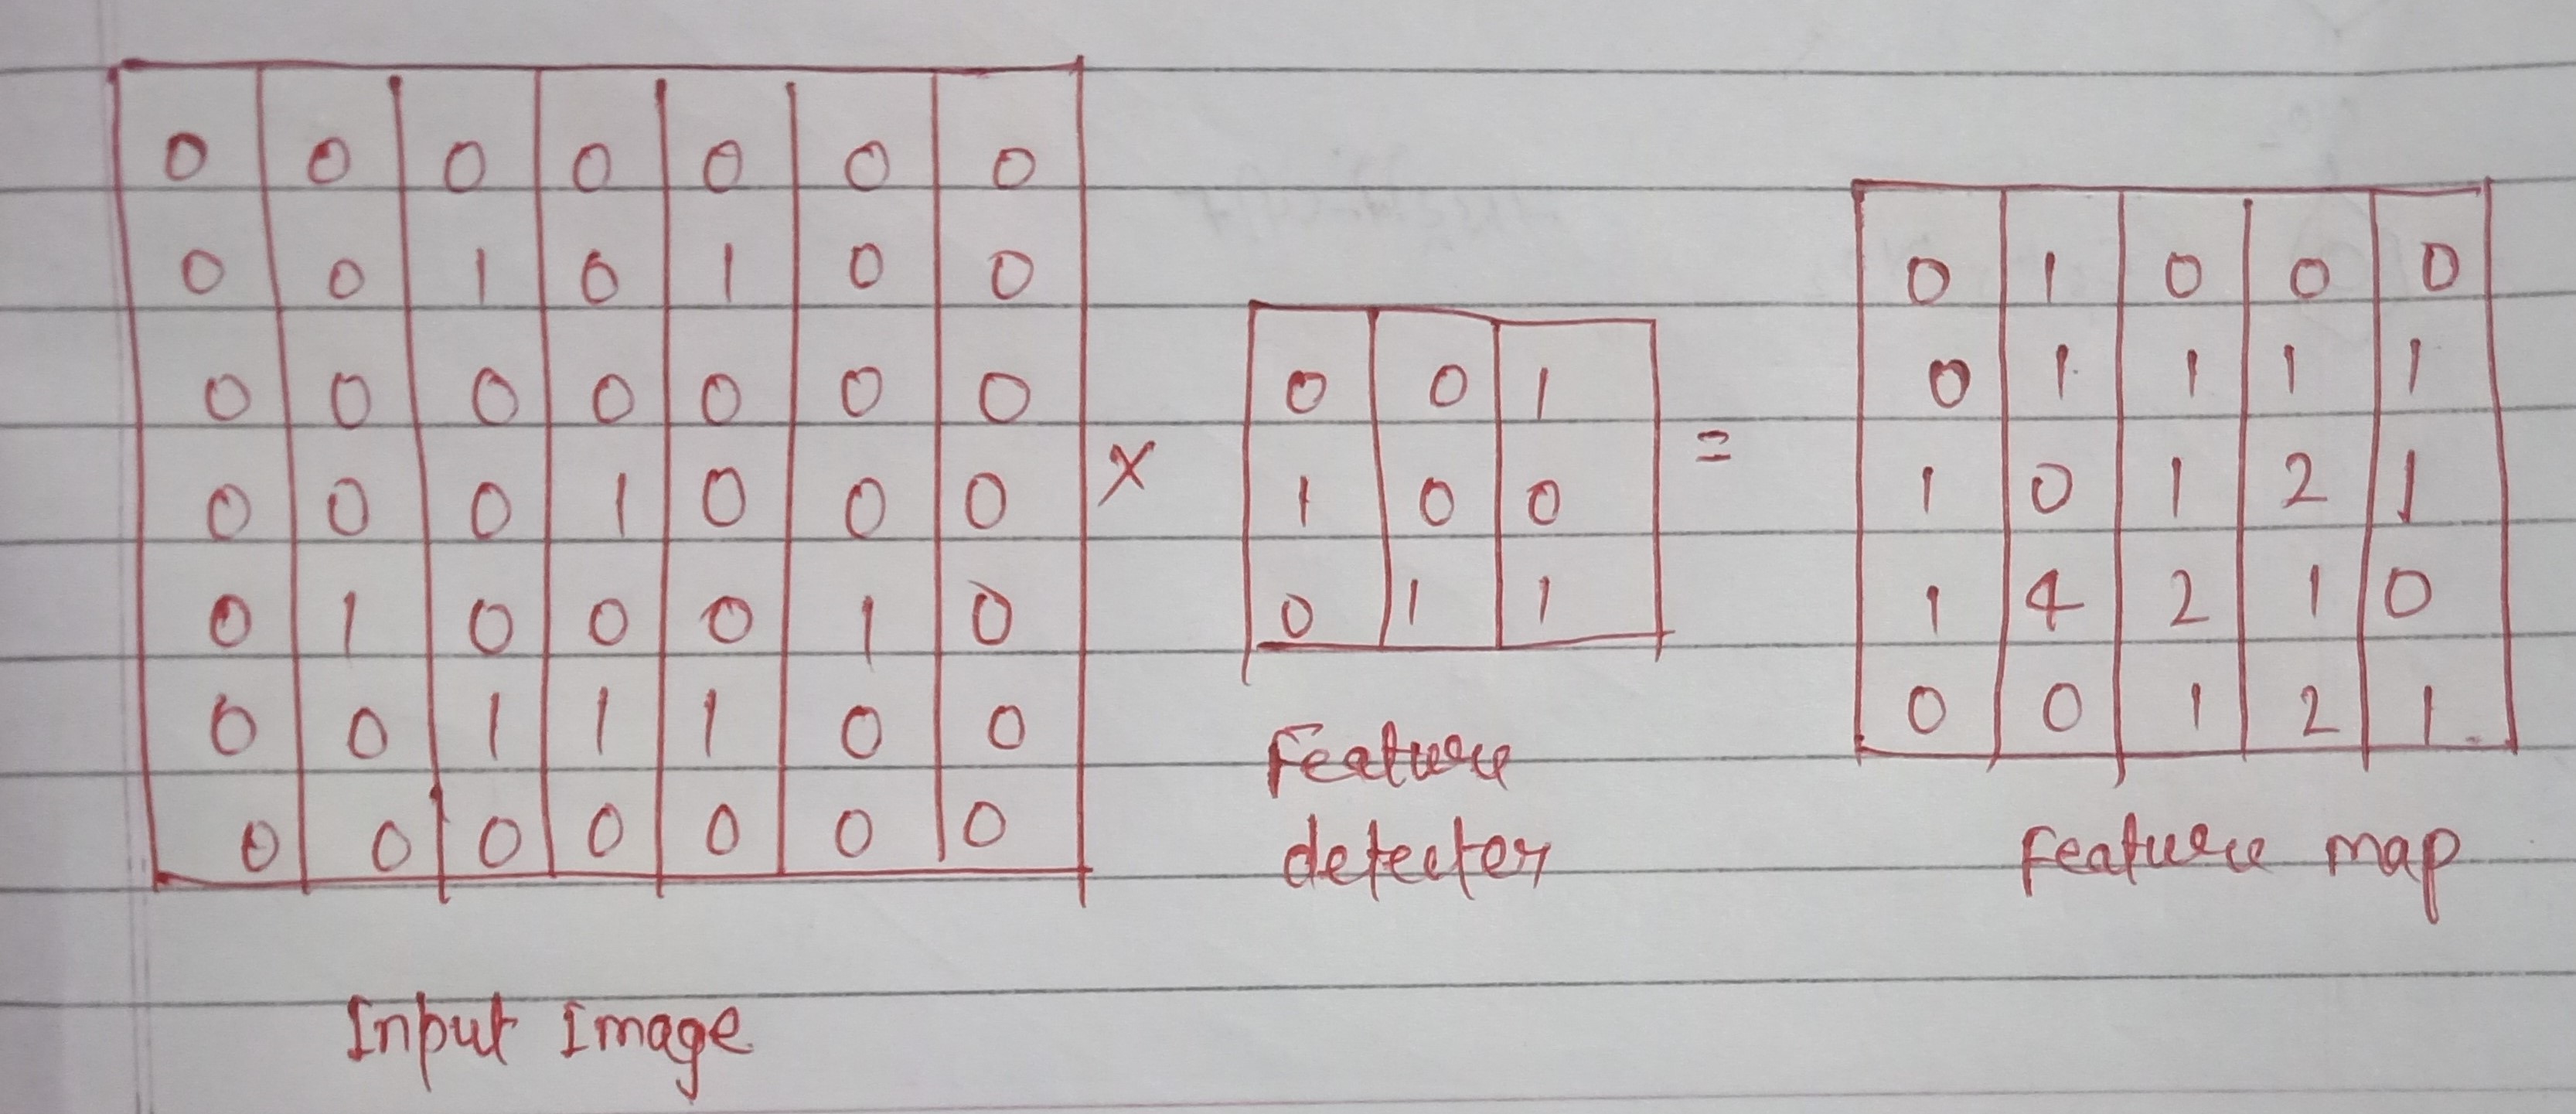 0 0 0 0 0 0 0
0 0 1 0 1 0 0
0 0 0 0 0 0 0
0 0 0 1 0 0 0
0 1 0 0 0 1 0
0 0 1 1 1 0 0
0 0 0 0 0 0 0
Input Image
×
0 0 1
1 0 0
0 1 1
Feature
detector
=
0 1 0 0 0
0 1 1 1 1
1 0 1 2 1
1 4 2 1 0
0 0 1 2 1
Feature map